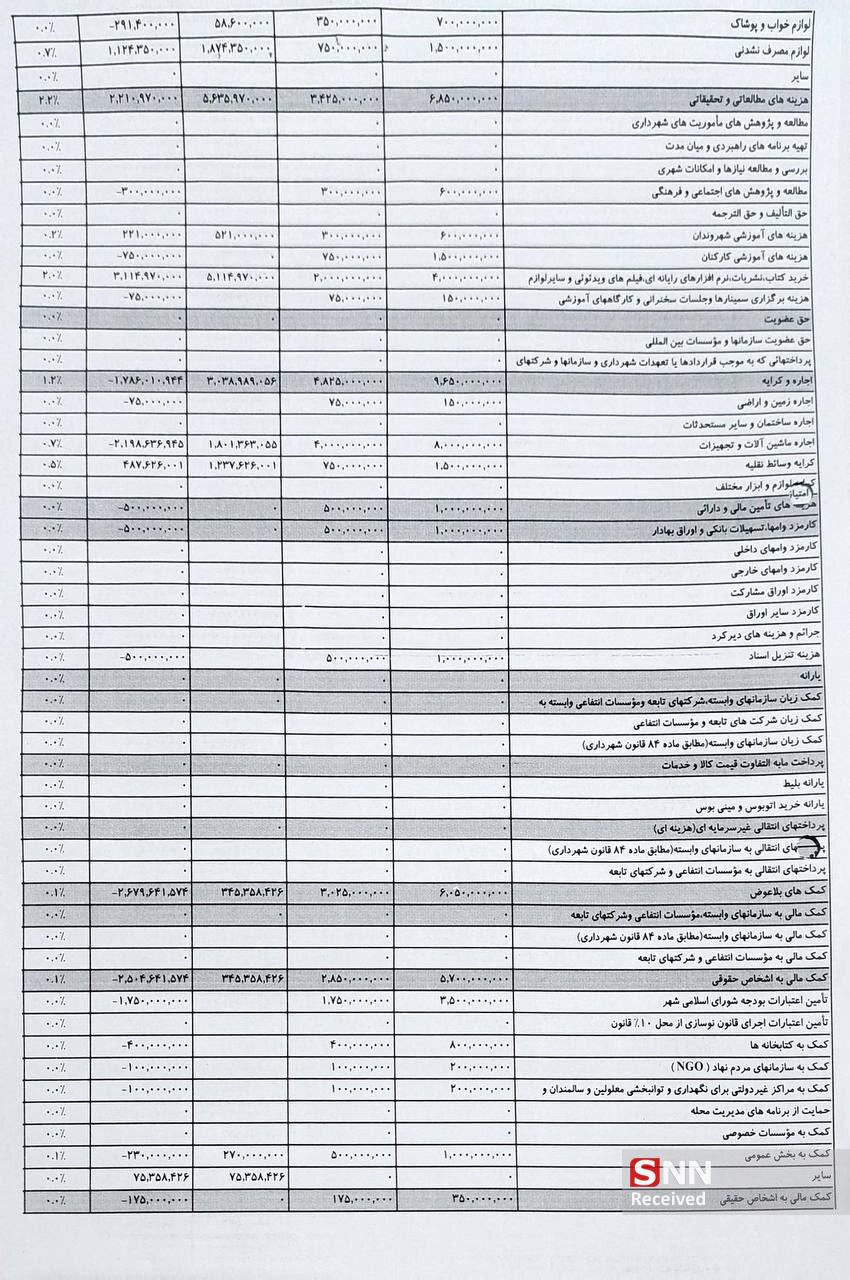 لوازم خواب و پوشاک ۷۰۰,۰۰۰,۰۰۰ ۳۵۰,۰۰۰,۰۰۰ ۵۸,۶۰۰,۰۰۰ -۲۹۱,۴۰۰,۰۰۰ ۰.۰٪
لوازم مصرف نشدنی ۱,۵۰۰,۰۰۰,۰۰۰ ۷۵۰,۰۰۰,۰۰۰ ۱,۸۷۴,۳۵۰,۰۰۰ ۱,۱۲۴,۳۵۰,۰۰۰ ۰.۷٪
سایر ۰ ۰ ۰ ۰.۰٪
هزینه های مطالعاتی و تحقیقاتی ۶,۸۵۰,۰۰۰,۰۰۰ ۳,۴۲۵,۰۰۰,۰۰۰ ۵,۶۳۵,۹۷۰,۰۰۰ ۲,۲۱۰,۹۷۰,۰۰۰ ۲.۲٪
مطالعه و پژوهش های مأموریت های شهرداری ۰ ۰ ۰ ۰.۰٪
تهیه برنامه های راهبردی و میان مدت ۰ ۰ ۰ ۰.۰٪
بررسی و مطالعه نیازها و امکانات شهری ۰ ۰ ۰ ۰.۰٪
مطالعه و پژوهش های اجتماعی و فرهنگی ۶۰۰,۰۰۰,۰۰۰ ۳۰۰,۰۰۰,۰۰۰ -۳۰۰,۰۰۰,۰۰۰ ۰.۰٪
حق التألیف و حق الترجمه ۰ ۰ ۰ ۰.۰٪
هزینه های آموزشی شهروندان ۶۰۰,۰۰۰,۰۰۰ ۳۰۰,۰۰۰,۰۰۰ ۵۲۱,۰۰۰,۰۰۰ ۲۲۱,۰۰۰,۰۰۰ ۰.۲٪
هزینه های آموزشی کارکنان ۱,۵۰۰,۰۰۰,۰۰۰ ۷۵۰,۰۰۰,۰۰۰ ۰ -۷۵۰,۰۰۰,۰۰۰ ۰.۰٪
خرید کتاب،نشریات،نرم افزارهای رایانه ای،فیلم های ویدئوئی و سایرلوازم ۴,۰۰۰,۰۰۰,۰۰۰ ۲,۰۰۰,۰۰۰,۰۰۰ ۵,۱۱۴,۹۷۰,۰۰۰ ۳,۱۱۴,۹۷۰,۰۰۰ ۲.۰٪
هزینه برگزاری سمینارها وجلسات سخنرانی و کارگاههای آموزشی ۱۵۰,۰۰۰,۰۰۰ ۷۵,۰۰۰,۰۰۰ -۷۵,۰۰۰,۰۰۰ ۰.۰٪
حق عضویت ۰ ۰ ۰ ۰ ۰.۰٪
حق عضویت سازمانها و مؤسسات بین المللی ۰ ۰ ۰ ۰.۰٪
پرداختهائی که به موجب قراردادها یا تعهدات شهرداری و سازمانها و شرکتهای ۰ ۰ ۰ ۰.۰٪
اجاره و کرایه ۹,۶۵۰,۰۰۰,۰۰۰ ۴,۸۲۵,۰۰۰,۰۰۰ ۳,۰۳۸,۹۸۹,۰۵۶ -۱,۷۸۶,۰۱۰,۹۴۴ ۱.۲٪
اجاره زمین و اراضی ۱۵۰,۰۰۰,۰۰۰ ۷۵,۰۰۰,۰۰۰ -۷۵,۰۰۰,۰۰۰ ۰.۰٪
اجاره ساختمان و سایر مستحدثات ۰ ۰ ۰ ۰.۰٪
اجاره ماشین آلات و تجهیزات ۸,۰۰۰,۰۰۰,۰۰۰ ۴,۰۰۰,۰۰۰,۰۰۰ ۱,۸۰۱,۳۶۳,۰۵۵ -۲,۱۹۸,۶۳۶,۹۴۵ ۰.۷٪
کرایه وسائط نقلیه ۱,۵۰۰,۰۰۰,۰۰۰ ۷۵۰,۰۰۰,۰۰۰ ۱,۲۳۷,۶۲۶,۰۰۱ ۴۸۷,۶۲۶,۰۰۱ ۰.۵٪
لوازم و ابزار مختلف ۰ ۰ ۰ ۰.۰٪
امتیاز
های تأمین مالی و دارائی ۱,۰۰۰,۰۰۰,۰۰۰ ۵۰۰,۰۰۰,۰۰۰ ۰ -۵۰۰,۰۰۰,۰۰۰ ۰.۰٪
کارمزد وامها،تسهیلات بانکی و اوراق بهادار ۱,۰۰۰,۰۰۰,۰۰۰ ۵۰۰,۰۰۰,۰۰۰ ۰ -۵۰۰,۰۰۰,۰۰۰ ۰.۰٪
کارمزد وامهای داخلی ۰ ۰ ۰ ۰.۰٪
کارمزد وامهای خارجی ۰ ۰ ۰ ۰.۰٪
کارمزد اوراق مشارکت ۰ ۰ ۰ ۰.۰٪
کارمزد سایر اوراق ۰ ۰ ۰ ۰.۰٪
جرائم و هزینه های دیرکرد ۰ ۰ ۰ ۰.۰٪
هزینه تنزیل اسناد ۱,۰۰۰,۰۰۰,۰۰۰ ۵۰۰,۰۰۰,۰۰۰ -۵۰۰,۰۰۰,۰۰۰ ۰.۰٪
یارانه ۰ ۰ ۰ ۰ ۰.۰٪
کمک زیان سازمانهای وابسته،شرکتهای تابعه ومؤسسات انتفاعی وابسته به ۰ ۰ ۰ ۰ ۰.۰٪
کمک زیان شرکت های تابعه و مؤسسات انتفاعی ۰ ۰ ۰ ۰.۰٪
کمک زیان سازمانهای وابسته(مطابق ماده ۸۴ قانون شهرداری) ۰ ۰ ۰ ۰.۰٪
پرداخت مابه التفاوت قیمت کالا و خدمات ۰ ۰ ۰ ۰ ۰.۰٪
یارانه بلیط ۰ ۰ ۰ ۰.۰٪
یارانه خرید اتوبوس و مینی بوس ۰ ۰ ۰ ۰.۰٪
پرداختهای انتقالی غیرسرمایه ای(هزینه ای) ۰ ۰ ۰ ۰ ۰.۰٪
های انتقالی به سازمانهای وابسته(مطابق ماده ۸۴ قانون شهرداری) ۰ ۰ ۰ ۰.۰٪
پرداختهای انتقالی به مؤسسات انتفاعی و شرکتهای تابعه ۰ ۰ ۰ ۰.۰٪
کمک های بلاعوض ۶,۰۵۰,۰۰۰,۰۰۰ ۳,۰۲۵,۰۰۰,۰۰۰ ۳۴۵,۳۵۸,۴۲۶ -۲,۶۷۹,۶۴۱,۵۷۴ ۰.۱٪
کمک مالی به سازمانهای وابسته،مؤسسات انتفاعی وشرکتهای تابعه ۰ ۰ ۰ ۰ ۰.۰٪
کمک مالی به سازمانهای وابسته(مطابق ماده ۸۴ قانون شهرداری) ۰ ۰ ۰ ۰.۰٪
کمک مالی به مؤسسات انتفاعی و شرکتهای تابعه ۰ ۰ ۰ ۰.۰٪
کمک مالی به اشخاص حقوقی ۵,۷۰۰,۰۰۰,۰۰۰ ۲,۸۵۰,۰۰۰,۰۰۰ ۳۴۵,۳۵۸,۴۲۶ -۲,۵۰۴,۶۴۱,۵۷۴ ۰.۱٪
تأمین اعتبارات بودجه شورای اسلامی شهر ۳,۵۰۰,۰۰۰,۰۰۰ ۱,۷۵۰,۰۰۰,۰۰۰ -۱,۷۵۰,۰۰۰,۰۰۰ ۰.۰٪
تأمین اعتبارات اجرای قانون نوسازی از محل ۱۰٪ قانون ۰ ۰ ۰ ۰.۰٪
کمک به کتابخانه ها ۸۰۰,۰۰۰,۰۰۰ ۴۰۰,۰۰۰,۰۰۰ -۴۰۰,۰۰۰,۰۰۰ ۰.۰٪
کمک به سازمانهای مردم نهاد ( NGO ) ۲۰۰,۰۰۰,۰۰۰ ۱۰۰,۰۰۰,۰۰۰ -۱۰۰,۰۰۰,۰۰۰ ۰.۰٪
کمک به مراکز غیردولتی برای نگهداری و توانبخشی معلولین و سالمندان و ۲۰۰,۰۰۰,۰۰۰ ۱۰۰,۰۰۰,۰۰۰ -۱۰۰,۰۰۰,۰۰۰ ۰.۰٪
حمایت از برنامه های مدیریت محله ۰ ۰ ۰ ۰.۰٪
کمک به مؤسسات خصوصی ۰ ۰ ۰ ۰.۰٪
کمک به بخش عمومی ۱,۰۰۰,۰۰۰,۰۰۰ ۵۰۰,۰۰۰,۰۰۰ ۲۷۰,۰۰۰,۰۰۰ -۲۳۰,۰۰۰,۰۰۰ ۰.۱٪
سایر ۰ ۰ ۷۵,۳۵۸,۴۲۶ ۷۵,۳۵۸,۴۲۶ ۰.۰٪
کمک مالی به اشخاص حقیقی ۳۵۰,۰۰۰,۰۰۰ ۱۷۵,۰۰۰,۰۰۰ ۰ -۱۷۵,۰۰۰,۰۰۰ ۰.۰٪
SNN
Received